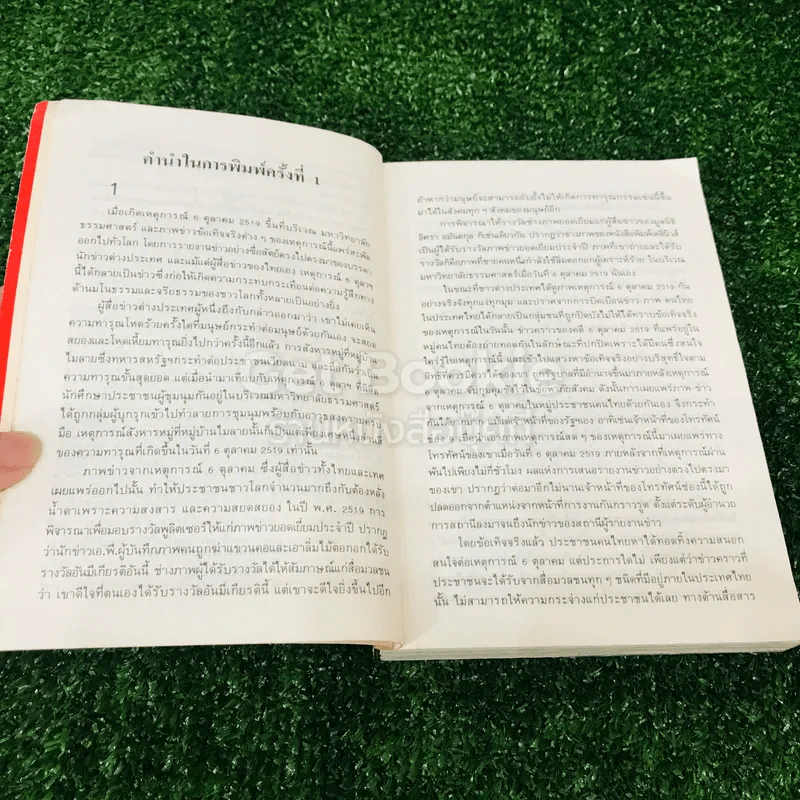 คำนำในการพิมพ์ครั้งที่ 1
1
เมื่อเกิดเหตุการณ์ 6 ตุลาคม 2519 ขึ้นที่บริเวณ มหาวิทยาลัย
ธรรมศาสตร์ และภาพข่าวข้อเท็จจริงต่าง ๆ ของเหตุการณ์นี้แพร่สะพัด
ออกไปทั่วโลก โดยการรายงานข่าวอย่างซื่อสัตย์ตรงไปตรงมาของบรรดา
นักข่าวต่างประเทศ และแม้แต่ผู้สื่อข่าวของไทยเอง เหตุการณ์ 6 ตุลาฯ
นี้ได้กลายเป็นข่าวซึ่งก่อให้เกิดความกระทบกระเทือนต่อความรู้สึกทาง
ด้านมโนธรรมและจริยธรรมของชาวโลกทั้งหลายเป็นอย่างยิ่ง
ผู้สื่อข่าวต่างประเทศผู้หนึ่งถึงกับกล่าวออกมาว่า เขาไม่เคยเห็น
ความทารุณโหดร้ายครั้งใดที่มนุษย์กระทำต่อมนุษย์ด้วยกันเอง จะสยด
สยองและโหดเหี้ยมทารุณยิ่งไปกว่าครั้งนี้อีกแล้ว การสังหารหมู่ที่หมู่บ้าน
ไมลายซึ่งทหารสหรัฐฯกระทำต่อประชาชนเวียดนาม และถือกันว่าเป็น
ความทารุณขั้นสุดยอด แต่เมื่อนำมาเทียบกับเหตุการณ์ 6 ตุลาฯ ที่นิสิต
นักศึกษาประชาชนผู้ชุมนุมกันอยู่ในบริเวณมหาวิทยาลัยธรรมศาสตร์
ได้ถูกกลุ่มผู้บุกรุกเข้าไปทำลายการชุมนุมพร้อมกับอาวุธสงครามครบ
มือ เหตุการณ์สังหารหมู่ที่หมู่บ้านไมลายนั้นก็เป็นแค่เพียงเศษหนึ่งส่วน
ของความทารุณที่เกิดขึ้นในวันที่ 6 ตุลาคม 2519 เท่านั้น
ภาพข่าวจากเหตุการณ์ 6 ตุลาคม ซึ่งผู้สื่อข่าวทั้งไทยและเทศ
เผยแพร่ออกไปนั้น ทำให้ประชาชนชาวโลกจำนวนมากถึงกับต้องหลั่ง
น้ำตาเพราะความสงสาร และความสยดสยอง ในปี พ.ศ. 2519 การ
พิจารณาเพื่อมอบรางวัลพูลิตเซอร์ให้แก่ภาพข่าวยอดเยี่ยมประจำปี ปรากฏ
ว่านักข่าวเอ.พี.ผู้บันทึกภาพคนถูกฆ่าแขวนคอและเอาลิ่มไม้ตอกอกได้รับ
รางวัลอันมีเกียรติอันนี้ ช่างภาพผู้ได้รับรางวัลได้ให้สัมภาษณ์แก่สื่อมวลชน
ว่า เขาดีใจที่ตนเองได้รับรางวัลอันมีเกียรตินี้ แต่เขาจะดีใจยิ่งขึ้นไปอีก
ถ้าหากว่ามนุษย์จะสามารถยับยั้งไม่ให้เกิดการทารุณกรรมเช่นนี้ขึ้น
มาได้ในสังคมทุก ๆ สังคมของมนุษย์อีก
การพิจารณาให้รางวัลช่างภาพยอดเยี่ยมแก่ผู้สื่อข่าวของมูลนิธิ
อิศรา อมันตกุล ก็เช่นเดียวกัน ปรากฏว่าช่างภาพของหนังสือพิมพ์เดลินิวส์
เป็นผู้ได้รับรางวัลภาพข่าวยอดเยี่ยมประจำปี ภาพที่เขาถ่ายและได้รับ
รางวัลก็คือภาพที่ชายคนหนึ่งกำลังใช้ไม้ตอกอกผู้เคราะห์ร้าย ในบริเวณ
มหาวิทยาลัยธรรมศาสตร์เมื่อวันที่ 6 ตุลาคม 2519 นั่นเอง
ในขณะที่ชาวต่างประเทศได้ดูภาพเหตุการณ์ 6 ตุลาคม 2519 กัน
อย่างจริงจังทุกแง่ทุกมุม และปราศจากการบิดเบือนข่าว-ภาพ คนไทย
ในประเทศไทยได้กลายเป็นกลุ่มชนที่ถูกปิดบังไม่ให้ได้ทราบข้อเท็จจริง
ของเหตุการณ์ในวันนั้น ข่าวคราวของคดี 6 ตุลาคม 2519 ที่แพร่อยู่ใน
หมู่คนไทยต้องถ่ายทอดกันในลักษณะที่ปกปิดเพราะได้มีคนซึ่งสนใจ
ใคร่รู้ในเหตุการณ์นี้ และเข้าไปแสวงหาข้อเท็จจริงอย่างบริสุทธิ์ใจตาม
ที่มีอำนาจขึ้นมาภายหลังเหตุการณ์
6 ตุลาคม จับกุมคุมขังไว้ในข้อหาภัยสังคม ดังนั้นการเผยแพร่ภาพ-ข่าว
จากเหตุการณ์ 6 ตุลาคมในหมู่ประชาชนคนไทยด้วยกันเอง จึงกระทำ
ไทรทัศน์ของเขาเมื่อวันที่ 6 ตุลาคม 2519 ภายหลังจากที่เหตุการณ์ผ่าน
พ้นไปเพียงไม่กี่ชั่วโมง ผลแห่งการเสนอรายงานข่าวอย่างตรงไปตรงมา
ของเขา ปรากฏว่าต่อมาอีกไม่นานเจ้าหน้าที่ของโทรทัศน์ช่องนี้ได้ถูก
ปลดออกจากตำแหน่งจากหน้าที่การงานกันกราวรูด ตั้งแต่ระดับผู้อำนวย
การสถานีลงมาจนถึงนักข่าวของสถานีผู้รายงานข่าว
โดยข้อเท็จจริงแล้ว ประชาชนคนไทยหาได้ทอดทิ้งความสนอก
สนใจต่อเหตุการณ์ 6 ตุลาคม แต่ประการใดไม่ เพียงแต่ว่าข่าวคราวที่
ประชาชนจะได้รับจากสื่อมวลชนทุก ๆ ชนิดที่มีอยู่ภายในประเทศไทย
นั้น ไม่สามารถให้ความกระจ่างแก่ประชาชนได้เลย ทางด้านสื่อสาร